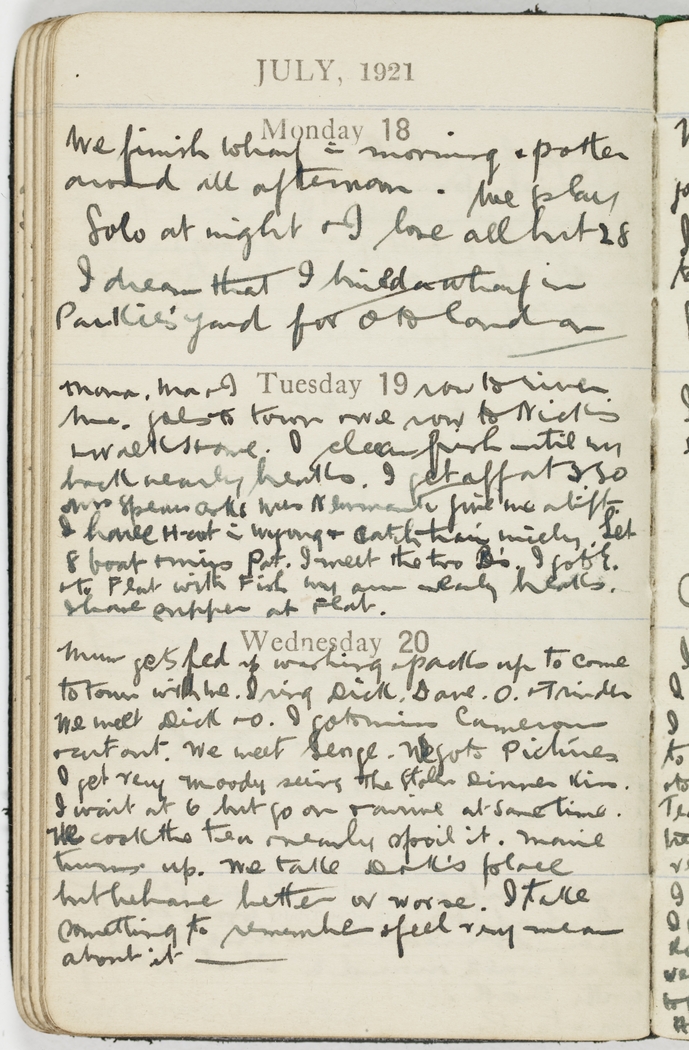 JULY, 1921
Monday 18
We finish wharf in morning & potter
around all afternoon. We play
Solo at night & I lose all but 28
I dream that I build a wharf in
Parkie's yard for O to land on
Tuesday 19
Mona, Ma & I row to river
Mu. goes to town & we row to Nick's
& walk home. I clean fish until my
back nearly breaks. I get off at 3.30
Mrs Spearwicks Miss give me a lift.
I have in Wyong & catch train nicely. Get
8 boat & miss Pat. I meet the two D's. I go to E.
& to Flat with Fish my arm nearly breaks.
I have supper at Flat.
Wednesday 20
Mum gets fed up washing & packs up to come
to town with me. I ring Dick, Dave. O. & Trinder
We meet Dick & O. I go to miss Cameron
& cart out. We meet Serge. We go to Pictures
I get very moody seeing the Stolen Dinner Kiss.
I wait at 6 but go on & arrive at same time.
We cook the tea & nearly spoil it. Marie
turns up. We take Dark's place
but behave better or worse. I take
something to remember & feel very mean
about it